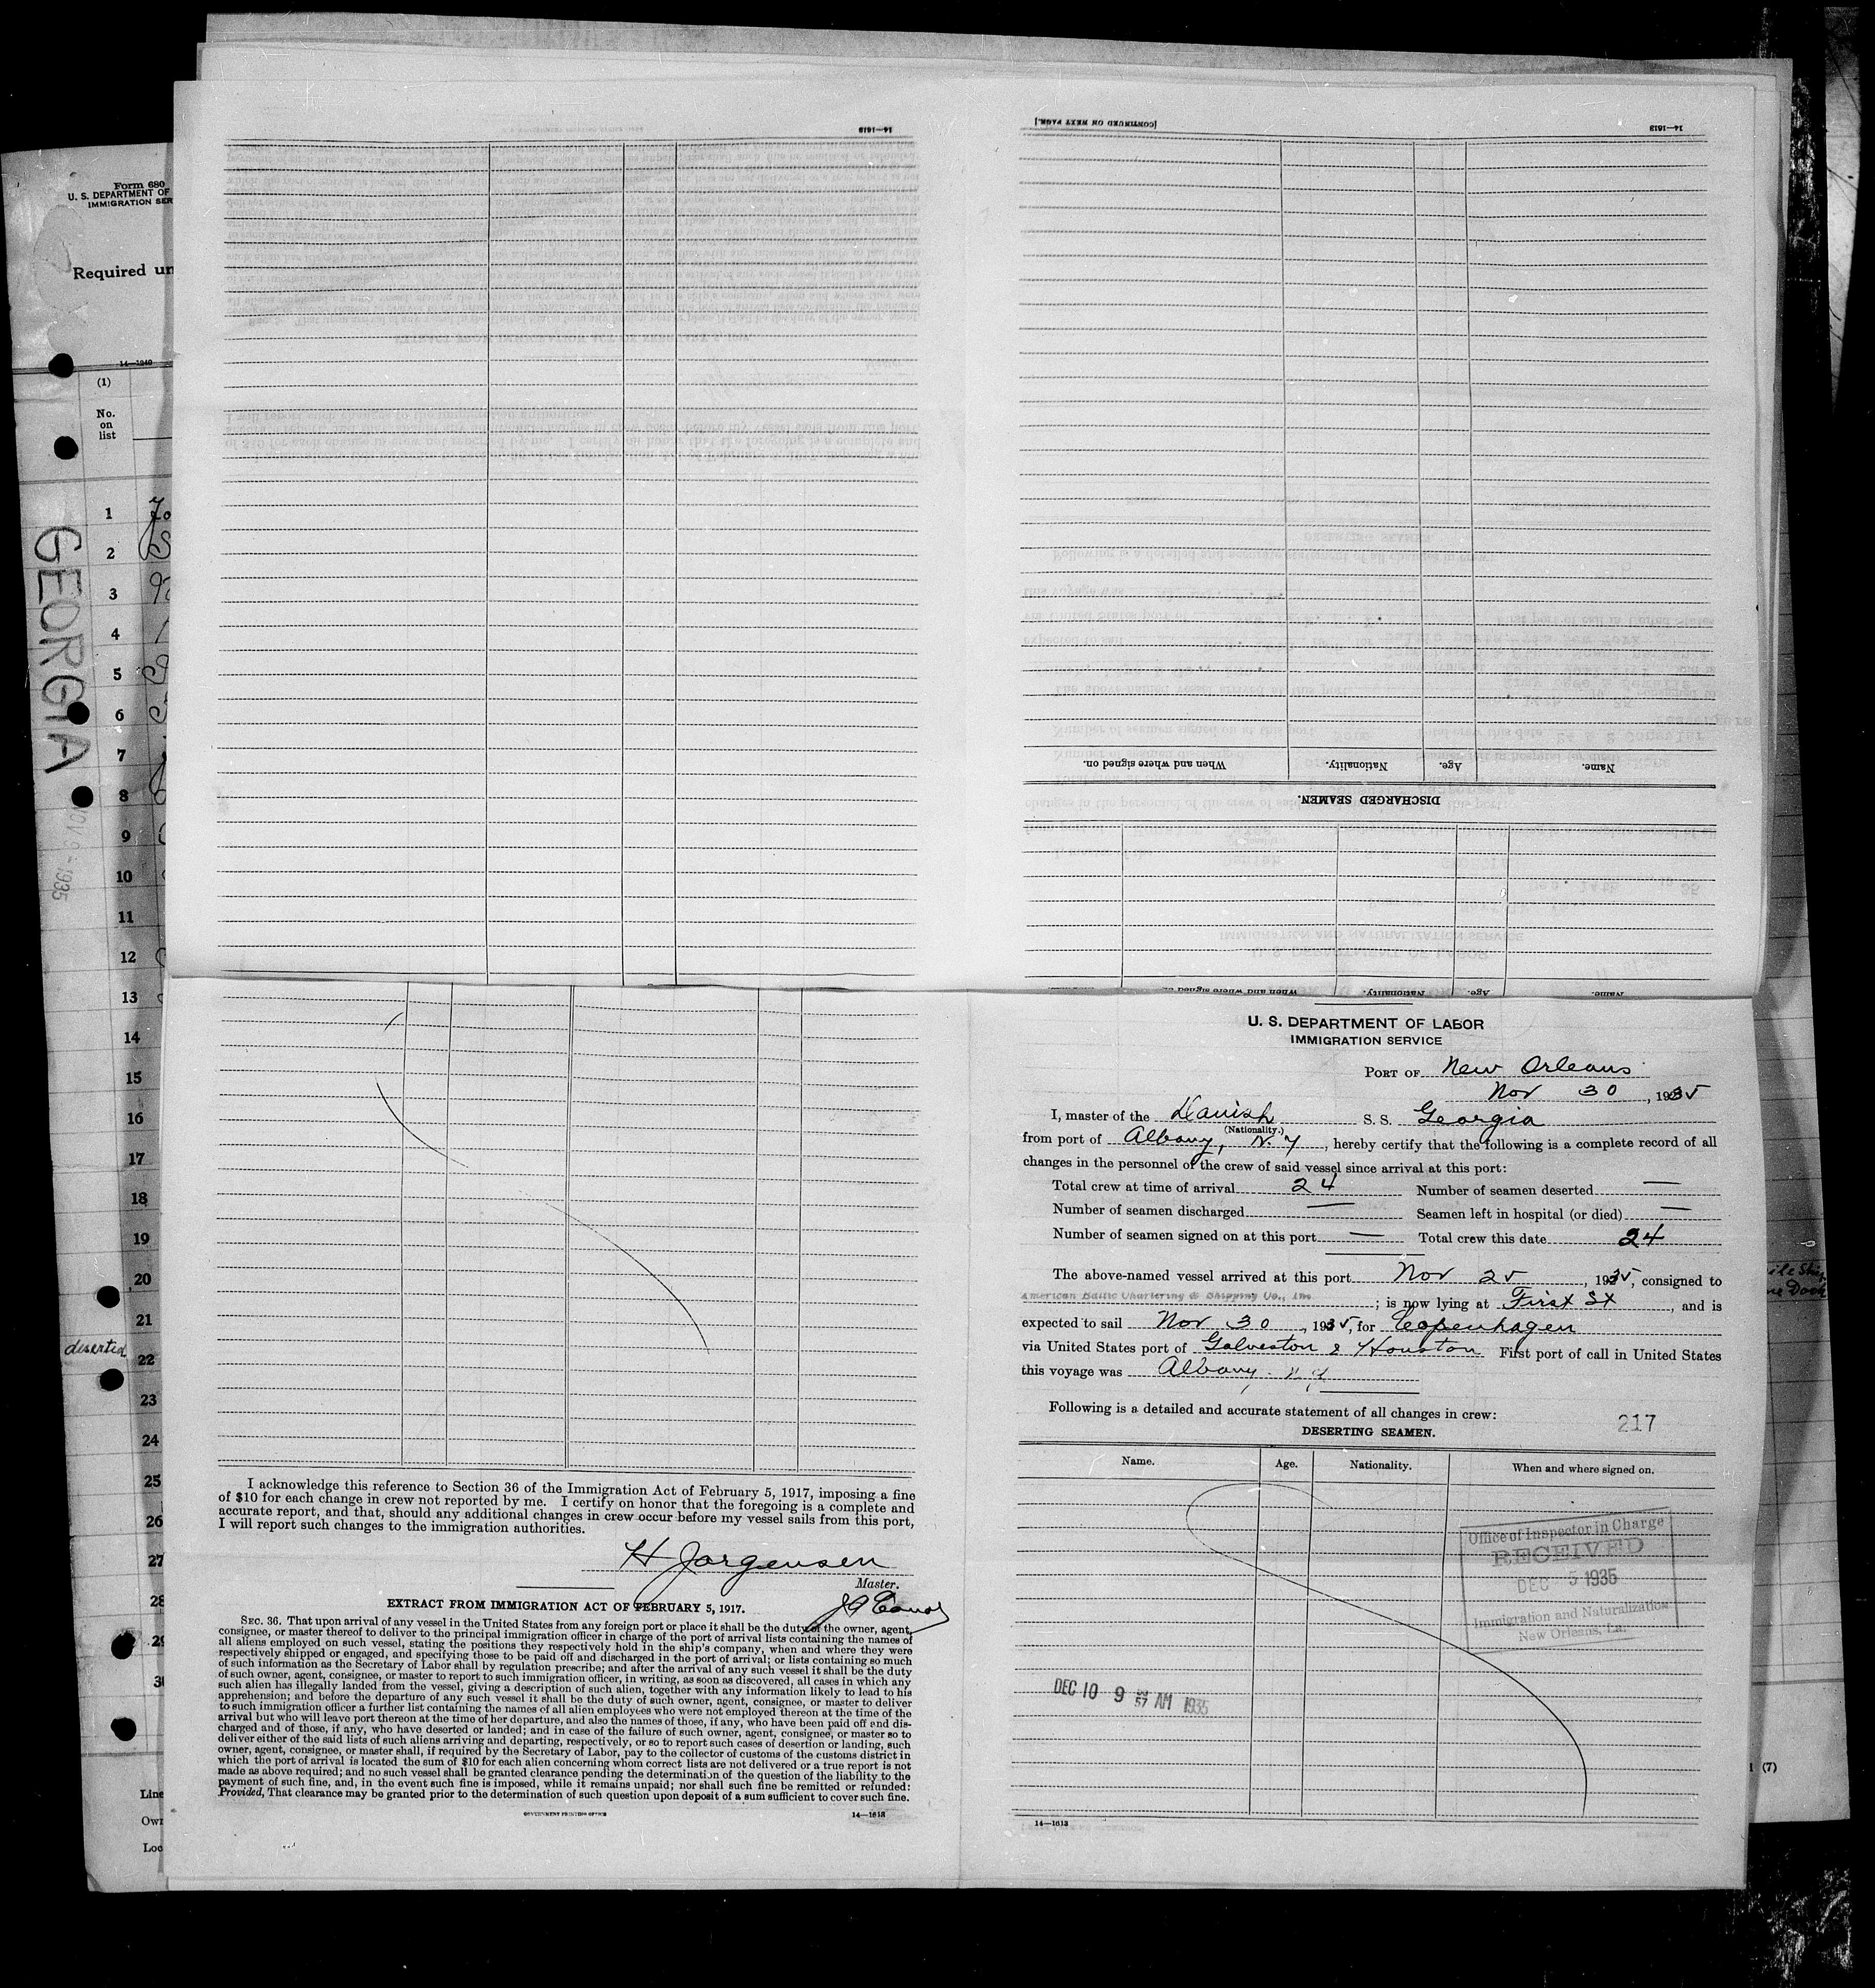 Form 680
U. S. DEPARTMENT OF
IMMIGRATION SER
Required un
14—1240
(1)
No.
on
list
1
2
3
4
5
6
7
8
9
10
11
12
13
14
15
16
17
18
19
20
21
22
23
24
25
26
27
28
29
30
GEORGIA
NOV 9 - 1935
deserted
Line
Own
Loc
14—1613
[CONTINUED ON NEXT PAGE.]
14—1613
Name. Age. Nationality. When and where signed on.
DISCHARGED SEAMEN.
Name. Age. Nationality. When and where signed on.
U. S. DEPARTMENT OF LABOR
IMMIGRATION SERVICE
PORT OF New Orleans
Nov 30, 1935
I, master of the Danish S. S. Georgia
(Nationality.)
from port of Albany, N. Y, hereby certify that the following is a complete record of all
changes in the personnel of the crew of said vessel since arrival at this port:
Total crew at time of arrival 24 Number of seamen deserted —
Number of seamen discharged — Seamen left in hospital (or died) —
Number of seamen signed on at this port — Total crew this date 24
The above-named vessel arrived at this port Nov 25, 1935, consigned to
American Baltic Chartering & Shipping Co., Inc. ; is now lying at First St, and is
expected to sail Nov 30, 1935, for Copenhagen
via United States port of Galveston & Houston First port of call in United States
this voyage was Albany. N. Y.
Following is a detailed and accurate statement of all changes in crew:
217
DESERTING SEAMEN.
Name. Age. Nationality. When and where signed on.
Office of Inspector in Charge
RECEIVED
DEC 5 1935
Immigration and Naturalization
New Orleans, La.
DEC 10 9 57 AM 1935
14—1613
I acknowledge this reference to Section 36 of the Immigration Act of February 5, 1917, imposing a fine
of $10 for each change in crew not reported by me. I certify on honor that the foregoing is a complete and
accurate report, and that, should any additional changes in crew occur before my vessel sails from this port,
I will report such changes to the immigration authorities.
H Jorgensen
Master.
EXTRACT FROM IMMIGRATION ACT OF FEBRUARY 5, 1917.
SEC. 36. That upon arrival of any vessel in the United States from any foreign port or place it shall be the duty of the owner, agent,
consignee, or master thereof to deliver to the principal immigration officer in charge of the port of arrival lists containing the names of
all aliens employed on such vessel, stating the positions they respectively hold in the ship's company, when and where they were
respectively shipped or engaged, and specifying those to be paid off and discharged in the port of arrival; or lists containing so much
of such information as the Secretary of Labor shall by regulation prescribe; and after the arrival of any such vessel it shall be the duty
of such owner, agent, consignee, or master to report to such immigration officer, in writing, as soon as discovered, all cases in which any
such alien has illegally landed from the vessel, giving a description of such alien, together with any information likely to lead to his
apprehension; and before the departure of any such vessel it shall be the duty of such owner, agent, consignee, or master to deliver
to such immigration officer a further list containing the names of all alien employees who were not employed thereon at the time of the
arrival but who will leave port thereon at the time of her departure, and also the names of those, if any, who have been paid off and dis-
charged and of those, if any, who have deserted or landed; and in case of the failure of such owner, agent, consignee, or master so to
deliver either of the said lists of such aliens arriving and departing, respectively, or so to report such cases of desertion or landing, such
owner, agent, consignee, or master shall, if required by the Secretary of Labor, pay to the collector of customs of the customs district in
which the port of arrival is located the sum of $10 for each alien concerning whom correct lists are not delivered or a true report is not
made as above required; and no such vessel shall be granted clearance pending the determination of the question of the liability to the
payment of such fine, and, in the event such fine is imposed, while it remains unpaid; nor shall such fine be remitted or refunded:
Provided, That clearance may be granted prior to the determination of such question upon deposit of a sum sufficient to cover such fine.
GOVERNMENT PRINTING OFFICE 14—1613
(7)